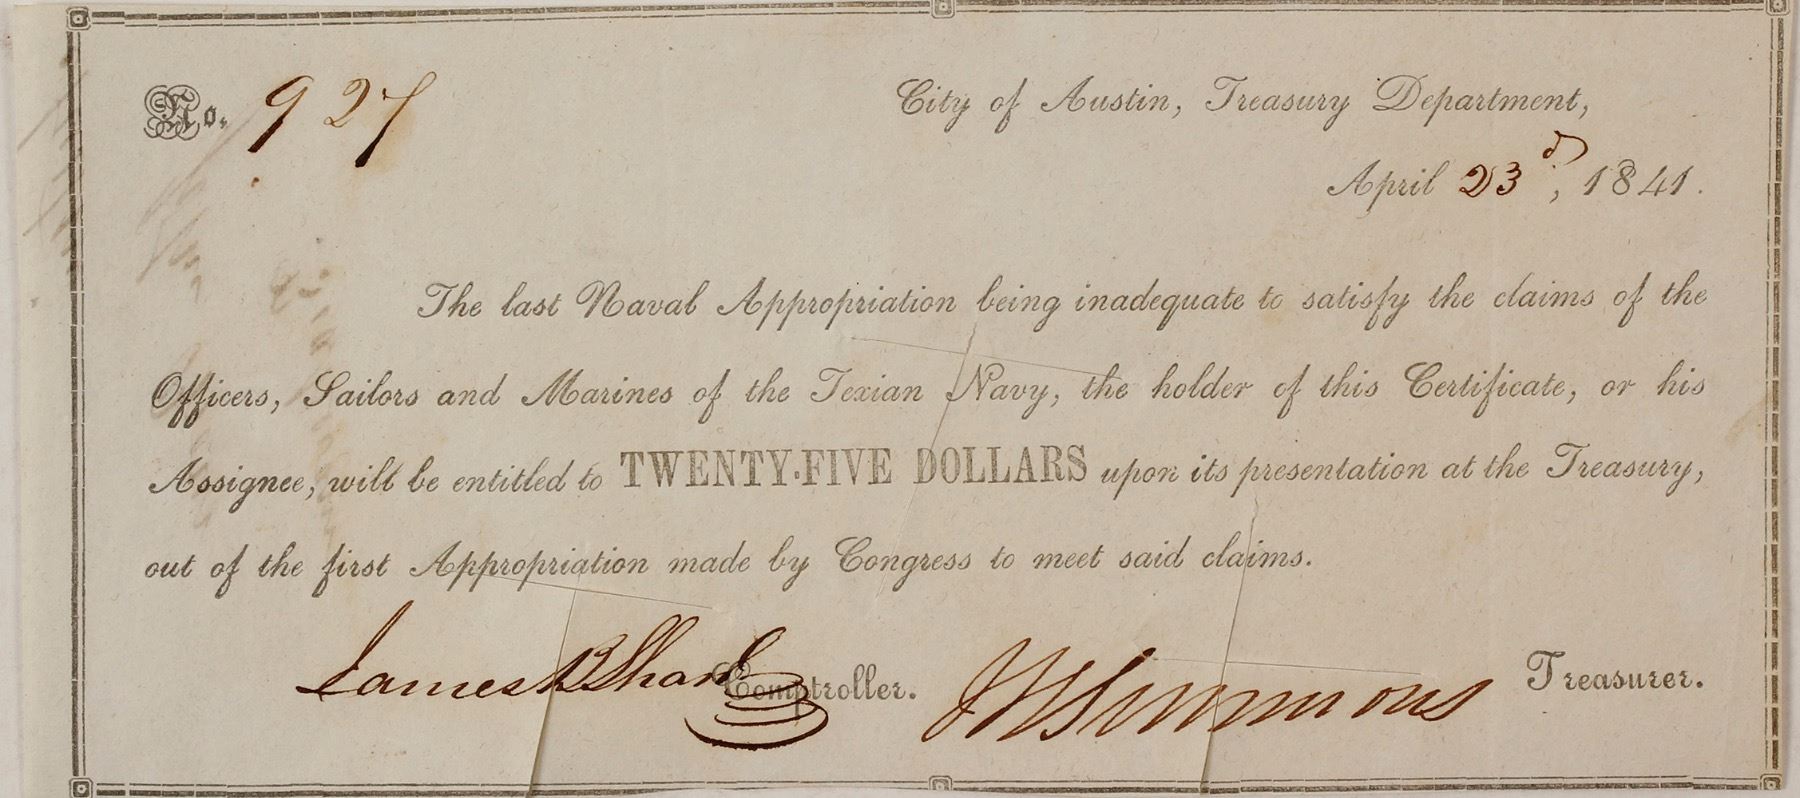 No. 927
City of Austin, Treasury Department,
April 23d, 1841.
The last Naval Appropriation being inadequate to satisfy the claims of the
Officers, Sailors and Marines of the Texian Navy, the holder of this Certificate, or his
Assignee, will be entitled to TWENTY-FIVE DOLLARS upon its presentation at the Treasury,
out of the first Appropriation made by Congress to meet said claims.
James B Shaw Comptroller. Simmons Treasurer.